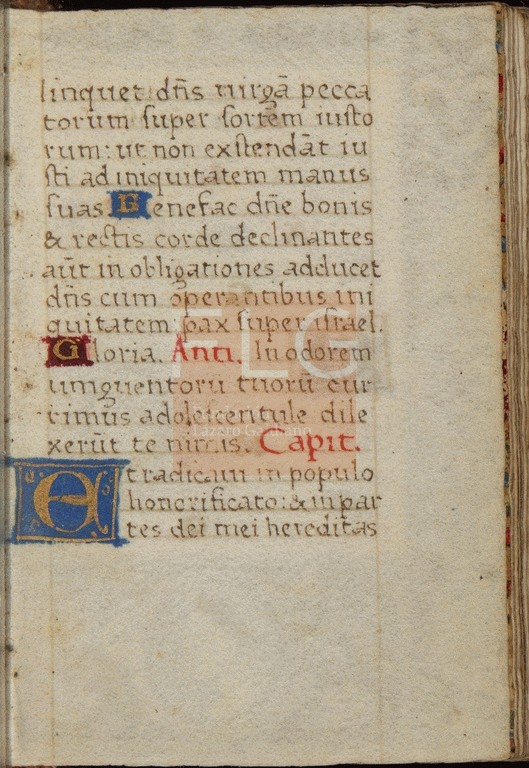 linquet dn̄s uirgā pecca
torum super sortem iusto
rum: ut non extendāt iu
sti ad iniquitatem manus
suas. Benefac dn̄e bonis
& rectis corde declinantes
aūt in obligationes adducet
dn̄s cum operantibus ini
quitatem: pax super israel.
Gloria. Anti. In odorem
unguentorū tuorū cur
rimus adolescentule dile
xerūt te nimis. Capit.
Et radicaui in populo
honorificato: & in par
tes dei mei hereditas
FLG
Lázaro Galdiano